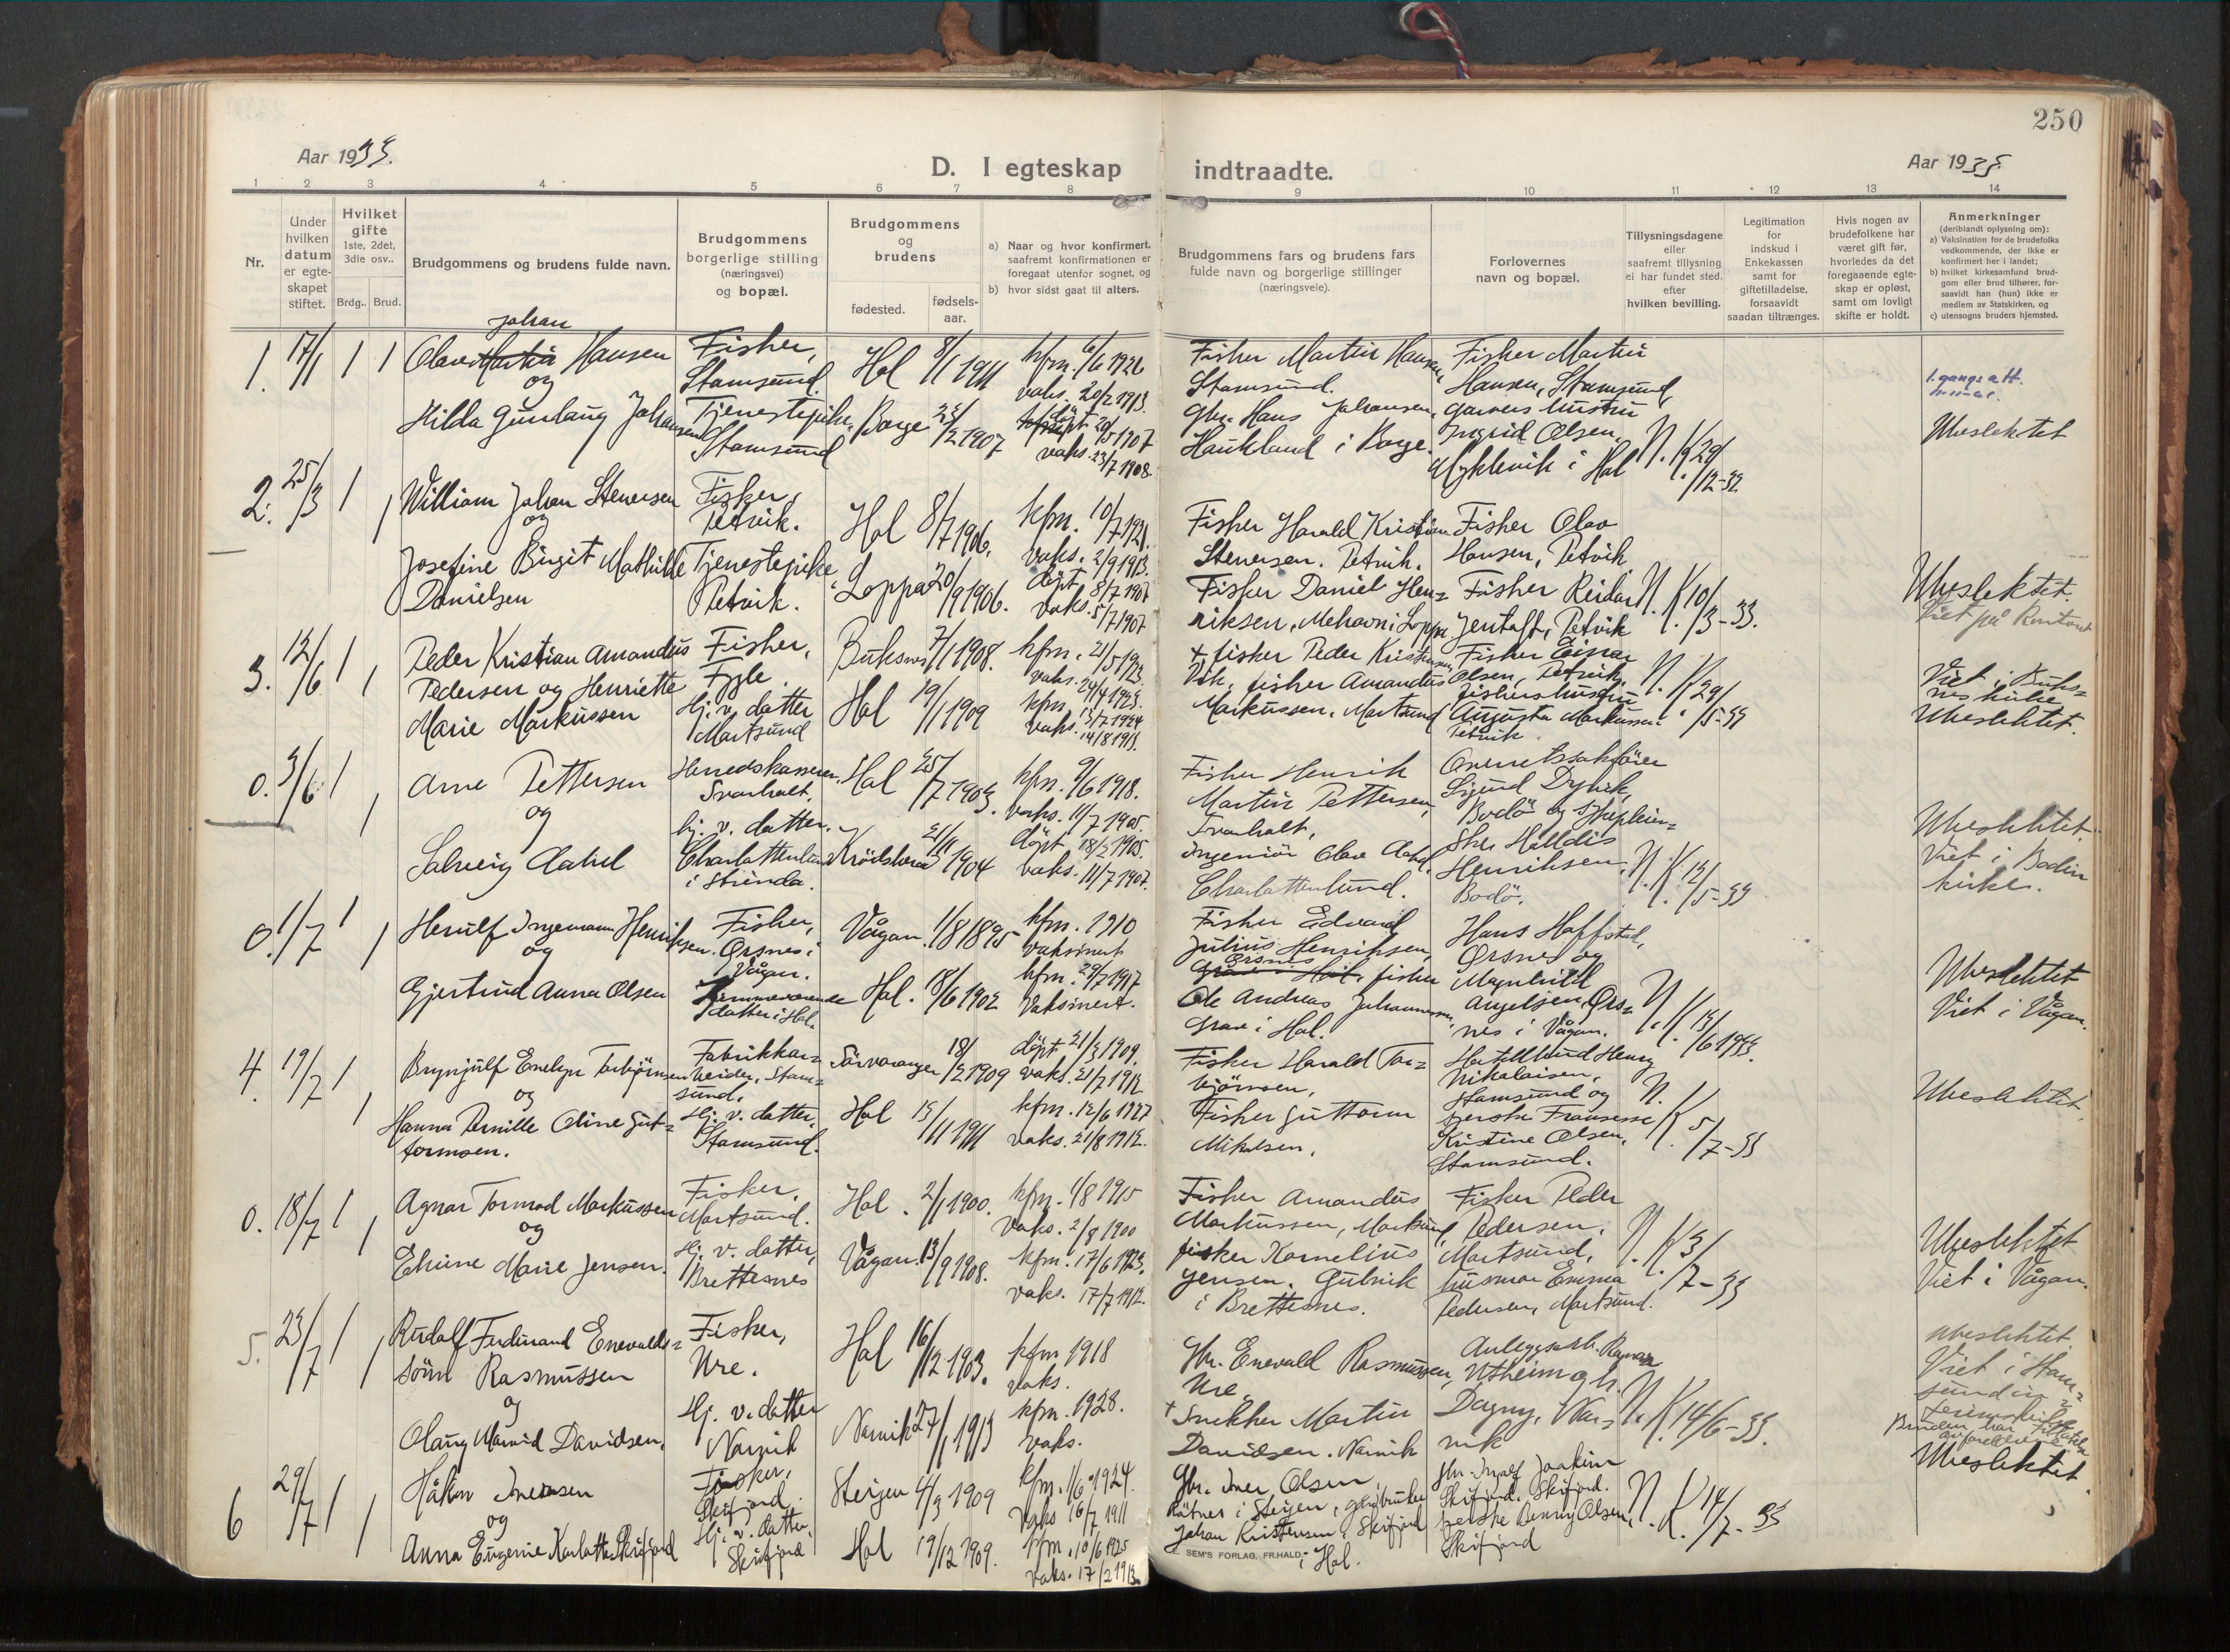 250
Aar 1933.
D. I egteskap indtraadte.
Aar 1933
1 2 3 4 5 6 7 8 9 10 11 12 13 14
Nr.
Under hvilken datum er egte-skapet stiftet.
Hvilket gifte 1ste, 2det, 3die osv..
Brdg.. Brud.
Brudgommens og brudens fulde navn.
Brudgommens borgerlige stilling (næringsvei) og bopæl.
Brudgommens og brudens
fødested.
fødsels-aar.
a) Naar og hvor konfirmert, saafremt konfirmationen er foregaat utenfor sognet, og
b) hvor sidst gaat til alters.
Brudgommens fars og brudens fars fulde navn og borgerlige stillinger (næringsveie).
Forlovernes navn og bopæl.
Tillysningsdagene eller saafremt tillysning ei har fundet sted. efter hvilken bevilling.
Legitimation for indskud i Enkekassen samt for giftetilladelse, forsaavidt saadan tiltrænges.
Hvis nogen av brudefolkene har været gift før, hvorledes da det foregaaende egte-skap er opløst, samt om lovligt skifte er holdt.
Anmerkninger (deriblandt oplysning om):
a) Vaksination for de brudefolks vedkommende, der ikke er konfirmert her i landet;
b) hvilket kirkesamfund brud-gom eller brud tilhører, for-saavidt han (hun) ikke er medlem av Statskirken, og
c) utensogns bruders hjemsted.
1. 17/1 1 1
Johan
Olav Martin Hansen
og
Hilda Gunlaug Johansen
Fisker, Stamsund.
Tjenestepike, Stamsund
Hol 8/1 1911
Borge
kfm. 6/6 1926
vaks. 20/2 1913.
døpt 20/5 1907
vaks. 23/7 1908.
Fisker Martin Hansen, Stamsund.
Gbr. Hans Johansen, Haukland i Borge.
Fisker Martin Hansen, Stamsund,
garvers hustru Ingrid Olsen, Myklevik i Hol
N. K. 29/12-32
Ubeslektet
2. 25/3 1 1
William Johan Stenersen
og
Josefine Birgit Mathilde Danielsen
Fisker, Petvik.
Tjenestepike Petvik.
Hol 8/7 1906.
Loppa 20/9 1906.
kfm. 10/7 1921.
vaks. 2/9 1913.
døpt 8/7 1907
vaks. 5/7 1907
Fisker Harald Kristian Stenersen. Petvik.
Fisker Daniel Hen=riksen, Mehavn i Loppa
Fisker Olav Hansen, Petvik
Fisker Reidar Jentoft, Petvik
N. K. 10/3-33.
Ubeslektet.
Viet på kontoret
3. 12/6 1 1
Peder Kristian Amandus Pedersen og Henriette Marie Markussen
Fisker, Fygle.
Hj. v. datter Mortsund
Buksnes 7/1 1908.
Hol 19/1 1909
kfm. 21/5 1923.
vaks. 14/8 1913.
+ fisker Peder Kristiansen
fisker Amandus Markussen. Mortsund
Fisker Einar Olsen, Petvik,
fiskers hustru Augusta Markussen Petvik.
N. K. 29/5-33
Viet i Buks=nes kirke
Ubeslektet.
0. 3/6 1 1
Arne Pettersen
og
Solveig Aatid
Herredskasserer. Svarholt.
hj. v. datter. Charlottenlund i Strinda.
Hol 25/7 1903.
Krödsherad 1904
kfm. 9/6 1918.
vaks. 11/7 1905.
døpt 18/2 1905.
vaks. 11/7 1907.
Fisker Henrik Martin Pettersen, Svarholt,
Ingeniør Olav Charlottenlund.
Overrettssakfører Sigurd Bodö og Henriksen, Bodö.
N. K. 12/5-33
Ubeslektet.
Viet i Bodin kirke.
0. 1/7 1 1
Herulf Ingemann Henriksen.
og
Gjertrud Anna Olsen
Fisker, Ørsnes i Vågan.
Hjemmeværende datter i Hol.
Vågan. 1/8 1895
Hol. 18/6 1902
kfm. 1910
vaksinert
kfm. 29/7 1917
Vaksinert.
Fisker Edvard Julius Henriksen, Ørsnes
fisker Ole Andreas Johannessen, Grav i Hol.
Hans Hoffstad, Ørsnes og Magnhild Angelsen, Ørs=nes i Vågan.
N. K. 13/6 1933.
Ubeslektet
Viet i Vågan.
4. 19/7 1 1
Brynjulf Emelyn Torbjörnsen
og
Hanna Pernille Oline Gut=tormsen.
Fabrikkar=beider, Stam=sund.
Hj. v. datter, Stamsund.
Sörvaranger 18/2 1909
Hol 15/11 1911
døpt 21/3 1909.
vaks. 21/7 1912
kfm. 12/6 1927
vaks. 21/8 1912.
Fisker Harald Tor=björnsen,
Fisker Guttorm Mikalsen.
Henry Nikolaisen, Stamsund og Kristine Olsen, Stamsund.
N. K. 5/7-33
Ubeslektet.
0. 18/7 1 1
Agnar Tormod Markussen
og
Elvine Marie Jensen.
Fisker, Mortsund.
Hj. v. datter, Brettesnes
Hol. 2/1 1900.
Vågan. 13/9 1908.
kfm. 1/8 1915
vaks. 2/8 1900
kfm. 17/6 1923.
vaks. 17/7 1912.
Fisker Amandus Markussen, Mortsund,
fisker Kornelius Jensen. Gulvik i Brettesnes.
Fisker Peder Pedersen. Mortsund,
husmor Emma Pedersen, Mortsund.
N. K. 3/7-33
Ubeslektet
Viet i Vågan.
5. 23/7 1 1
Rudolf Ferdinand Enevalds=sönn Rasmussen
og
Olaug Marvid Davidsen.
Fisker, Ure.
Hj. v. datter Narvik
Hol 16/12 1903.
Narvik 27/1 1913
kfm 1918
vaks.
kfm. 1928.
vaks.
Gbr. Enevald Rasmussen, Ure.
+ Snekker Martin Davidsen. Narvik
Anleggsarb. Ragnar Utheim og h. Dagny, Nar=vik
N. K. 14/6-33.
Ubeslektet
Viet i Stam=sund
Bruden har
6 29/7 1 1
Håkon Iversen
og
Anna Eugenie Karlotta Skifjord
Fisker, Skifjord.
Hj. v. datter, Skifjord
Steigen 4/3 1909
Hol 19/12 1909.
kfm. 1/6 1924.
vaks 16/7 1911
kfm. 10/6 1925
vaks. 17/2 1913.
Gbr. Iver Olsen i Steigen, gårdbruker Johan Kristensen Skifjord i Hol.
Gbr. Ingolf Joakim Skifjord. Skifjord.
Benny Olsen, Skifjord
N. K. 14/7-33
Ubeslektet.
SEM'S FORLAG, FR.HALD.